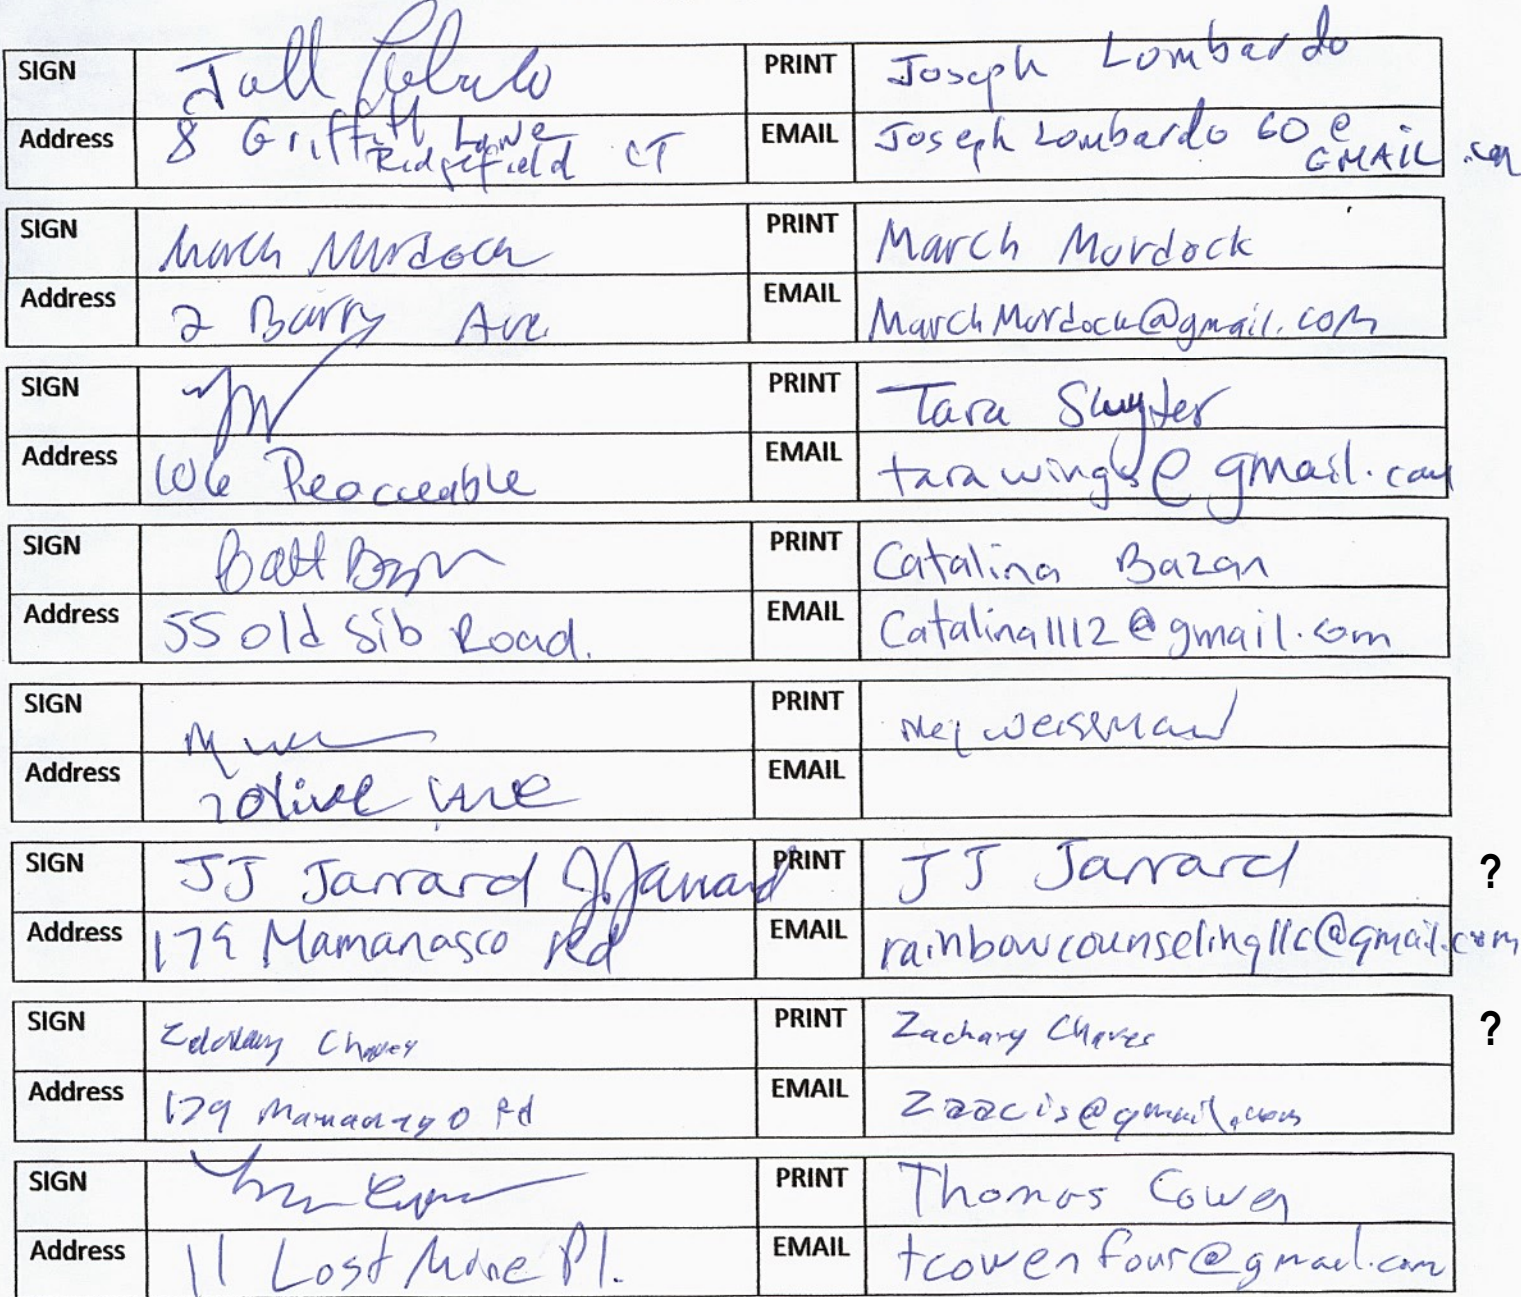 SIGN PRINT Joseph Lombardo
Address 8 Griffith Lane Ridgefield CT EMAIL Joseph Lombardo 60@GMAIL.com
SIGN March Murdock PRINT March Murdock
Address 2 Barry Ave EMAIL MarchMurdock@gmail.com
SIGN PRINT Tara Sluyter
Address 106 Peacceable EMAIL tarawings@gmail.com
SIGN PRINT Catalina Bazan
Address 55 old Sib Road. EMAIL Catalina1112@gmail.com
SIGN PRINT Mel Weissman
Address Olive EMAIL
SIGN JJ Jarrard J. Jarrard PRINT JJ Jarrard ?
Address 179 Mamanasco Rd EMAIL rainbowcounselingllc@gmail.com
SIGN Zachary Chaves PRINT Zachary Chaves ?
Address 179 Rd EMAIL zaacis@gmail.com
SIGN PRINT Thomas Cowen
Address 11 Lost Mine Pl. EMAIL tcowenfour@gmail.com